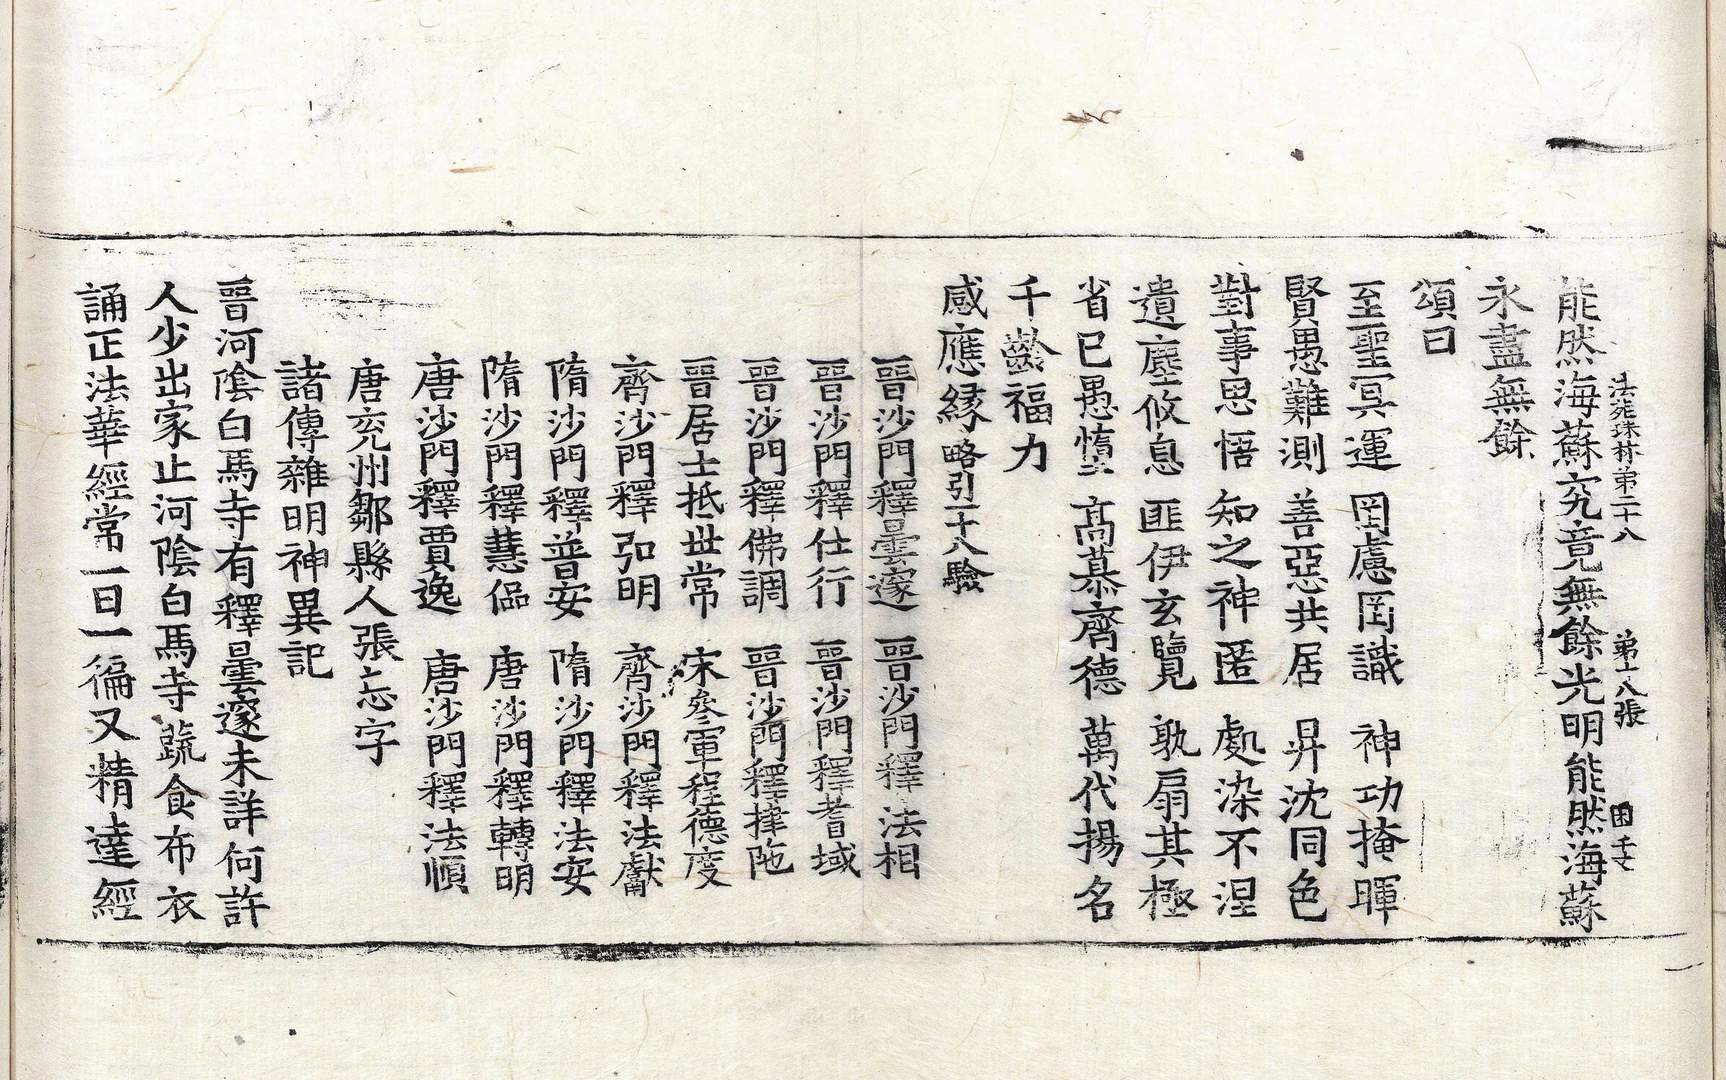 能然海蘇究竟無餘光明能然海蘇
法苑珠林第二十八 第十八張
永盡無餘
頌曰
至聖冥運 罔慮罔識 神功掩暉
賢愚難測 善惡共居 昇沈同色
對事思悟 知之神匿 處染不涅
遺塵攸息 匪伊玄覽 孰扇其極
省已愚惰 髙慕齊德 萬代揚名
千齡福力
感應緣略引一十八驗
晉沙門釋曇邃 晉沙門釋法相
晉沙門釋仕行 晉沙門釋耆域
晉沙門釋佛調 晉沙門釋揵陁
晉居士抵世常 宋叅軍程德度
齊沙門釋弘明 齊沙門釋法獻
隋沙門釋普安 隋沙門釋法安
隋沙門釋慧偘 唐沙門釋轉明
唐沙門釋賈逸 唐沙門釋法順
唐兖州鄒縣人張忘字
諸傳雜明神異記
晉河陰白馬寺有釋曇邃未詳何許
人少出家止河陰白馬寺蔬食布衣
誦正法華經常一日一徧又精達經